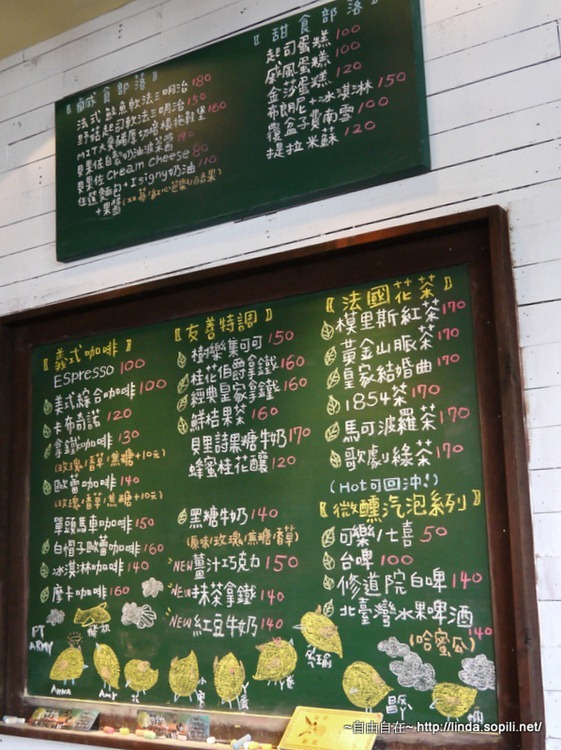 〖鹹食部落〗
法式鮭魚軟法三明治 180
野菇起司軟法三明治 150
160
貝果佐自製奶油菠菜醬 140
貝果佐Cream Cheese 80
佐蔓麵包+Isigny奶油 110
+果醬
〖甜食部落〗
起司蛋糕 100
戚風蛋糕 100
金莎蛋糕 120
布朗尼+冰淇淋 150
覆盆子費南雪 100
提拉米蘇 120
〖義式咖啡〗
Espresso 100
美式綜合咖啡 100
卡布奇諾 120
拿鐵咖啡 130
(玫瑰/香草/焦糖+10元)
歐蕾咖啡 140
(玫瑰/香草/焦糖+10元)
單頭馬車咖啡 150
白帽子歐蕾咖啡 160
冰淇淋咖啡 140
摩卡咖啡 160
〖友善特調〗
樹樂集可可 150
桂花伯爵拿鐵 160
經典皇家拿鐵 160
鮮桔果茶 160
貝里詩黑糖牛奶 170
蜂蜜桂花釀 120
黑糖牛奶 140
(原味/玫瑰/焦糖/香草)
NEW 薑汁巧克力 150
NEW 抹茶拿鐵 140
NEW 紅豆牛奶 140
〖法國花茶〗
模里斯紅茶 170
黃金山脈茶 170
皇家結婚曲 170
1854茶 170
馬可波羅茶 170
歌劇綠茶 170
(Hot可回沖!)
〖微醺汽泡系列〗
可樂/七喜 50
台啤 100
修道院白啤 140
北臺灣水果啤酒 140
(哈蜜瓜)
PT
ARMY
Anna
Amy
~自由自在~http://linda.sopili.net/